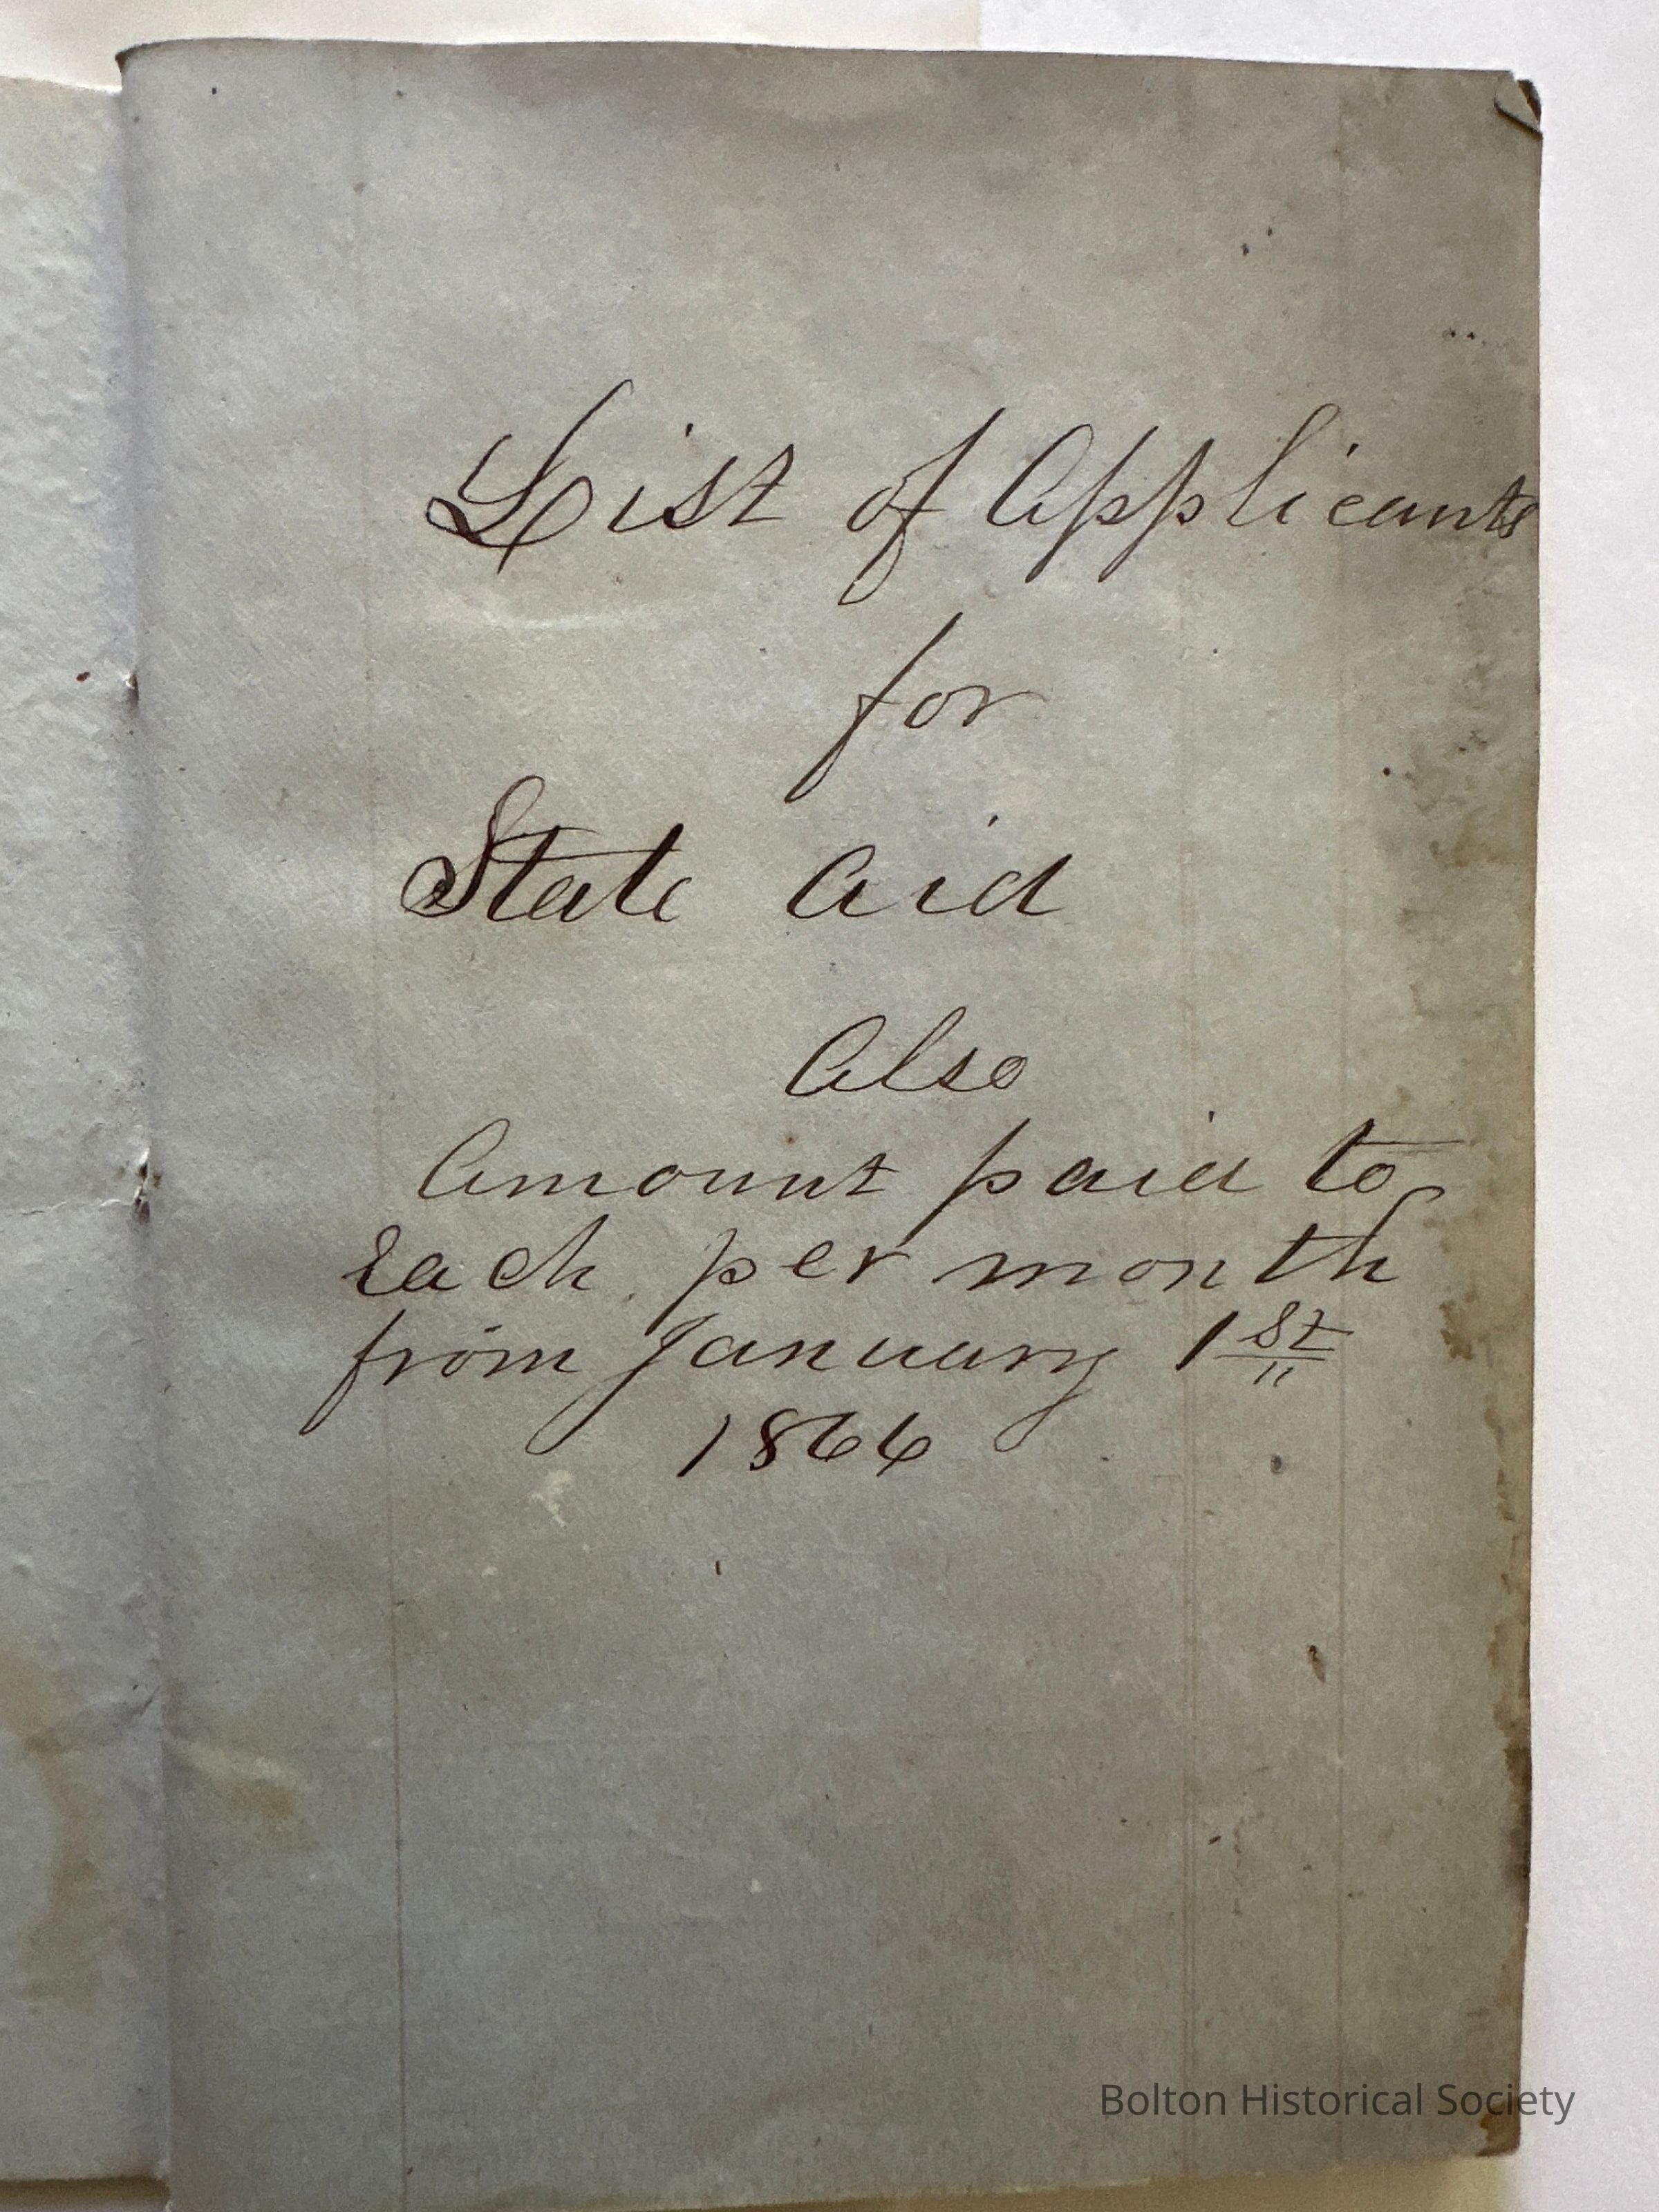 List of Applicants
for
State Aid
Also
Amount paid to
Each per month
from January 1st
1866
Bolton Historical Society